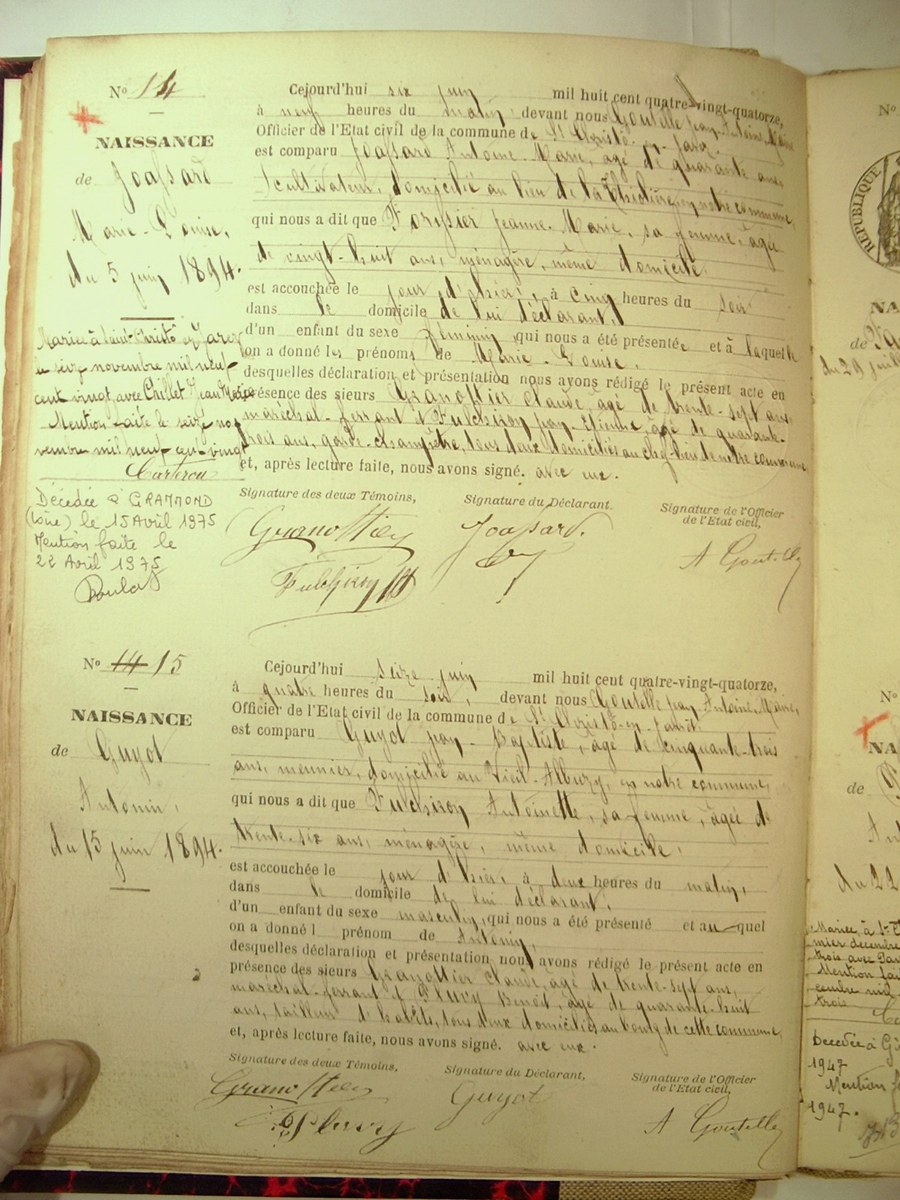 N° 14
NAISSANCE
de Joassard
Marie-Louise,
du 5 juin 1894.
Mariée à Saint-Christô en Jarez
le seize novembre mil neuf
cent vingt avec Caillet Jean
Mention faite le seize no-
vembre mil neuf cent vingt
Décédée à GRAMMOND
(Loire) le 15 Avril 1975
Mention faite le
22 Avril 1975
Cejourd'hui six juin mil huit cent quatre-vingt-quatorze,
à neuf heures du matin devant nous Goutelle Jean-Antoine Maire
Officier de l'Etat civil de la commune de St Christô-en-Jarez
est comparu Joassard Antoine-Marie, âgé de quarante ans
cultivateur, domicilié au lieu de la en notre commune,
qui nous a dit que Jeanne-Marie, sa femme, âgée
de vingt-huit ans, ménagère, même domicile.
est accouchée le jour d'hier, à cinq heures du soir
dans le domicile de lui déclarant,
d'un enfant du sexe féminin, qui nous a été présentée et à laquelle
on a donné les prénoms de Marie-Louise.
desquelles déclaration et présentation nous avons rédigé le présent acte en
présence des sieurs Granottier Claude, âgé de trente-sept ans
maréchal-ferrant et Fulchiron Jean-Etienne, âgé de quarante-
trois ans, garde-champêtre, tous deux domiciliés au chef-lieu de notre commune
et, après lecture faite, nous avons signé. avec eux.
Signature des deux Témoins,
Signature du Déclarant.
Signature de l'Officier
de l'Etat civil,
Granottier
Joassard.
Fulchiron
A Goutelle
N° 14 15
NAISSANCE
de Guyot
Antonin,
du 15 juin 1894.
Cejourd'hui seize juin mil huit cent quatre-vingt-quatorze,
à quatre heures du soir, devant nous Goutelle Jean Antoine Maire,
Officier de l'Etat civil de la commune de St Christô-en-Jarez
est comparu Guyot Jean-Baptiste, âgé de cinquante-trois
ans, meunier, domicilié au Vieil-Albuzy, en notre commune,
qui nous a dit que Fulchiron Antoinette, sa femme, âgée de
trente-six ans, ménagère, même domicile,
est accouchée le jour d'hier, à deux heures du matin,
dans le domicile de lui déclarant,
d'un enfant du sexe masculin, qui nous a été présenté et auquel
on a donné l prénom de Antonin,
desquelles déclaration et présentation nous avons rédigé le présent acte en
présence des sieurs Granottier Claude, âgé de trente-sept ans,
maréchal-ferrant et Fleury Benoit, âgé de quarante-huit
ans, tailleur d'habits, tous deux domiciliés au bourg de cette commune,
et, après lecture faite, nous avons signé. avec eux.
Signature des deux Témoins,
Signature du Déclarant,
Signature de l'Officier
de l'Etat civil,
Granottier
Guyot
Fleury
A Goutelle
N°
RÉPUBLIQUE
NA
de
du 29 juil
N°
NA
de
du 22
Mariée à St-
mier décembre
trois avec
Mention fai
cembre mil
trois
Décédée à
1947
Mention f
1947.